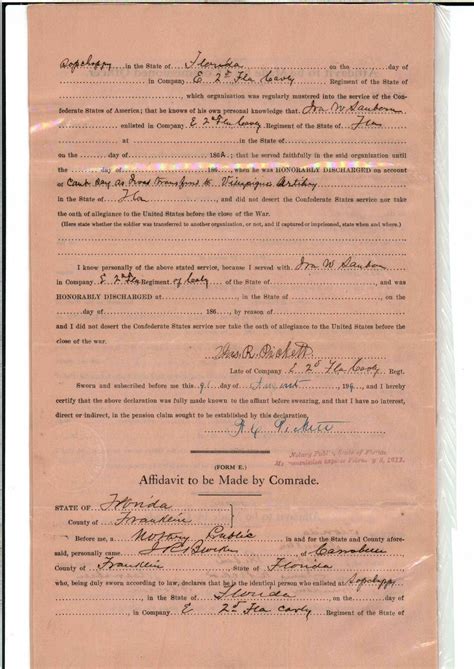 Sopchoppy in the State of Florida on the day of
in Company E 2d Fla Cavly Regiment of the State of
which organization was regularly mustered into the service of the Con-
federate States of America; that he knows of his own personal knowledge that Ira W Sanborn
enlisted in Company E 2d Fla Cavly Regiment of the State of Fla
on the day of 186 ; that he served faithfully in the said organization until
the day of 186 when he was HONORABLY DISCHARGED on account
of Cant say as I was transferd to Artilery
in the State of Fla and did not desert the Confederate States service nor take
the oath of allegiance to the United States before the close of the War.
(Here state whether the soldier was transferred to another organization, or not, and if captured or imprisoned, state when and where.)
I know personally of the above stated service, because I served with Ira W Sanborn
in Company E 2d Fla Regiment of Cavly of the State of , and was
HONORABLY DISCHARGED at , in the State of , on the
day of 186 , by reason of
and I did not desert the Confederate States service nor take oath of allegiance to the United States before the
close of the war.
R. Pickett
Late of Company E 2d Fla Cavly Regt.
Sworn and subscribed before me this day of August 190 , and I hereby
certify that the above declaration was fully made known to the affiant before swearing, and that I have no interest,
direct or indirect, in the pension claim sought to be established by this declaration.
Notary Public, State of Florida
My commission expires
(FORM E.)
Affidavit to be Made by Comrade.
STATE OF Florida
County of Franklin
Before me, a Notary Public in and for the State and County afore-
said, personally came of Carrabelle
County of Franklin State of Florida
who, being duly sworn according to law, declares that he is the identical person who enlisted at Sopchoppy
in the State of Florida on the day of
, in Company E 2d Fla Cavly Regiment of the State of